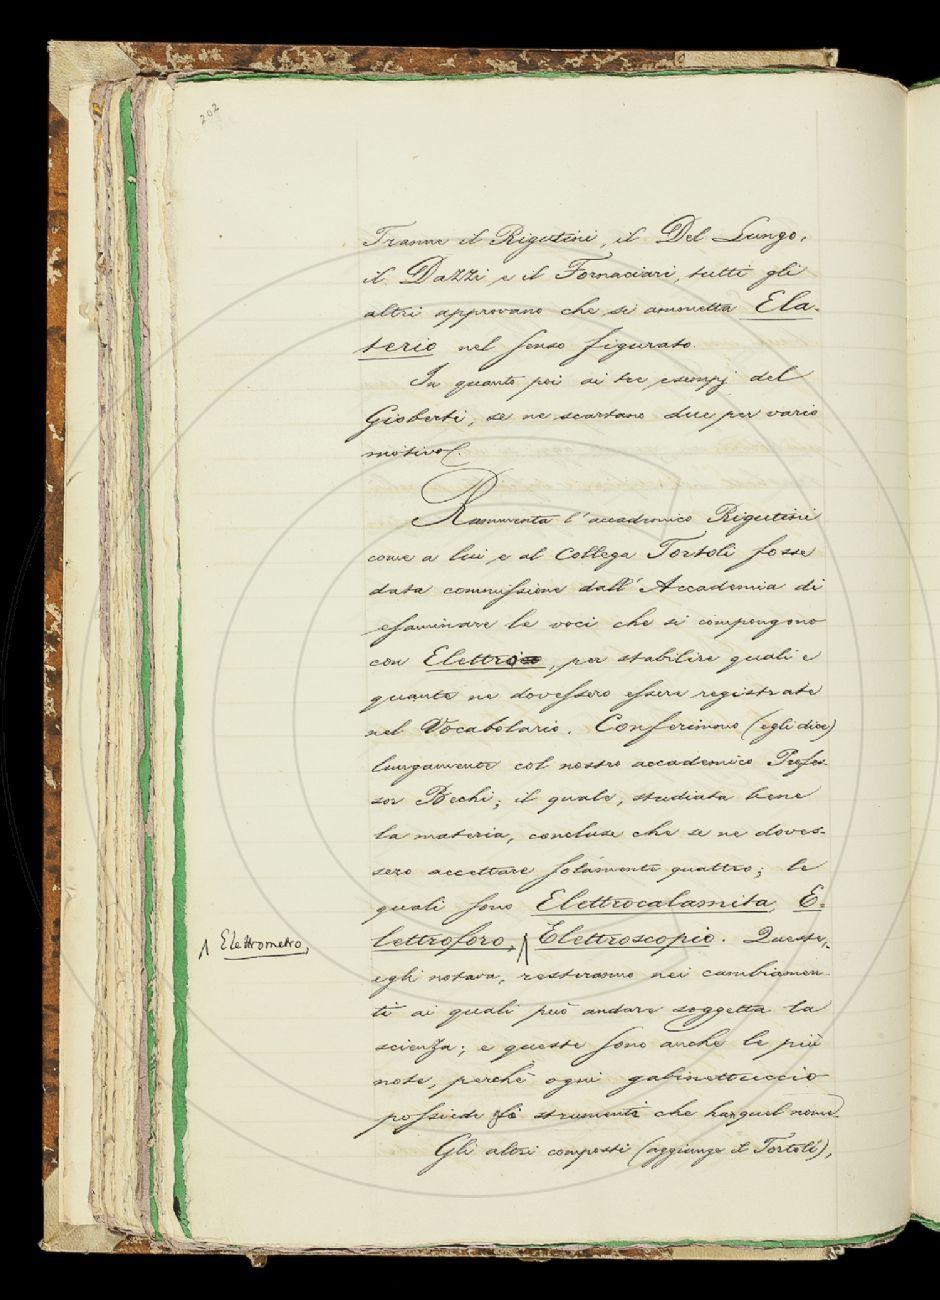 202
Tranne il Rigutini, il Del Lungo,
il Dazzi e il Fornaciari, tutti gli
altri approvano che si ammetta Ela-
terio nel senso figurato.
In quanto poi ai tre esempj del
Gioberti, se ne scartano due per vario
motivo.
Rammenta l'accademico Rigutini
come a lui e al Collega Tortoli fosse
data commissione dall'Accademia di
esaminare le voci che si compongono
con Elettro, per stabilire quali e
quante ne dovessero essere registrate
nel Vocabolario. Conferimmo (egli dice)
lungamente col nostro accademico Profes-
sor Bechi; il quale, studiata bene
la materia, concluse che se ne doves-
sero accettare solamente quattro; le
quali sono Elettrocalamita, E-
lettroforo, Elettroscopio. Queste,
Elettrometro,
egli notava, resteranno nei cambiamen-
ti ai quali può andare soggetta la
scienza; e queste sono anche le più
note, perchè ogni gabinettuccio
possiede strumenti che han quel nome.
Gli altri composti (aggiunge il Tortoli),